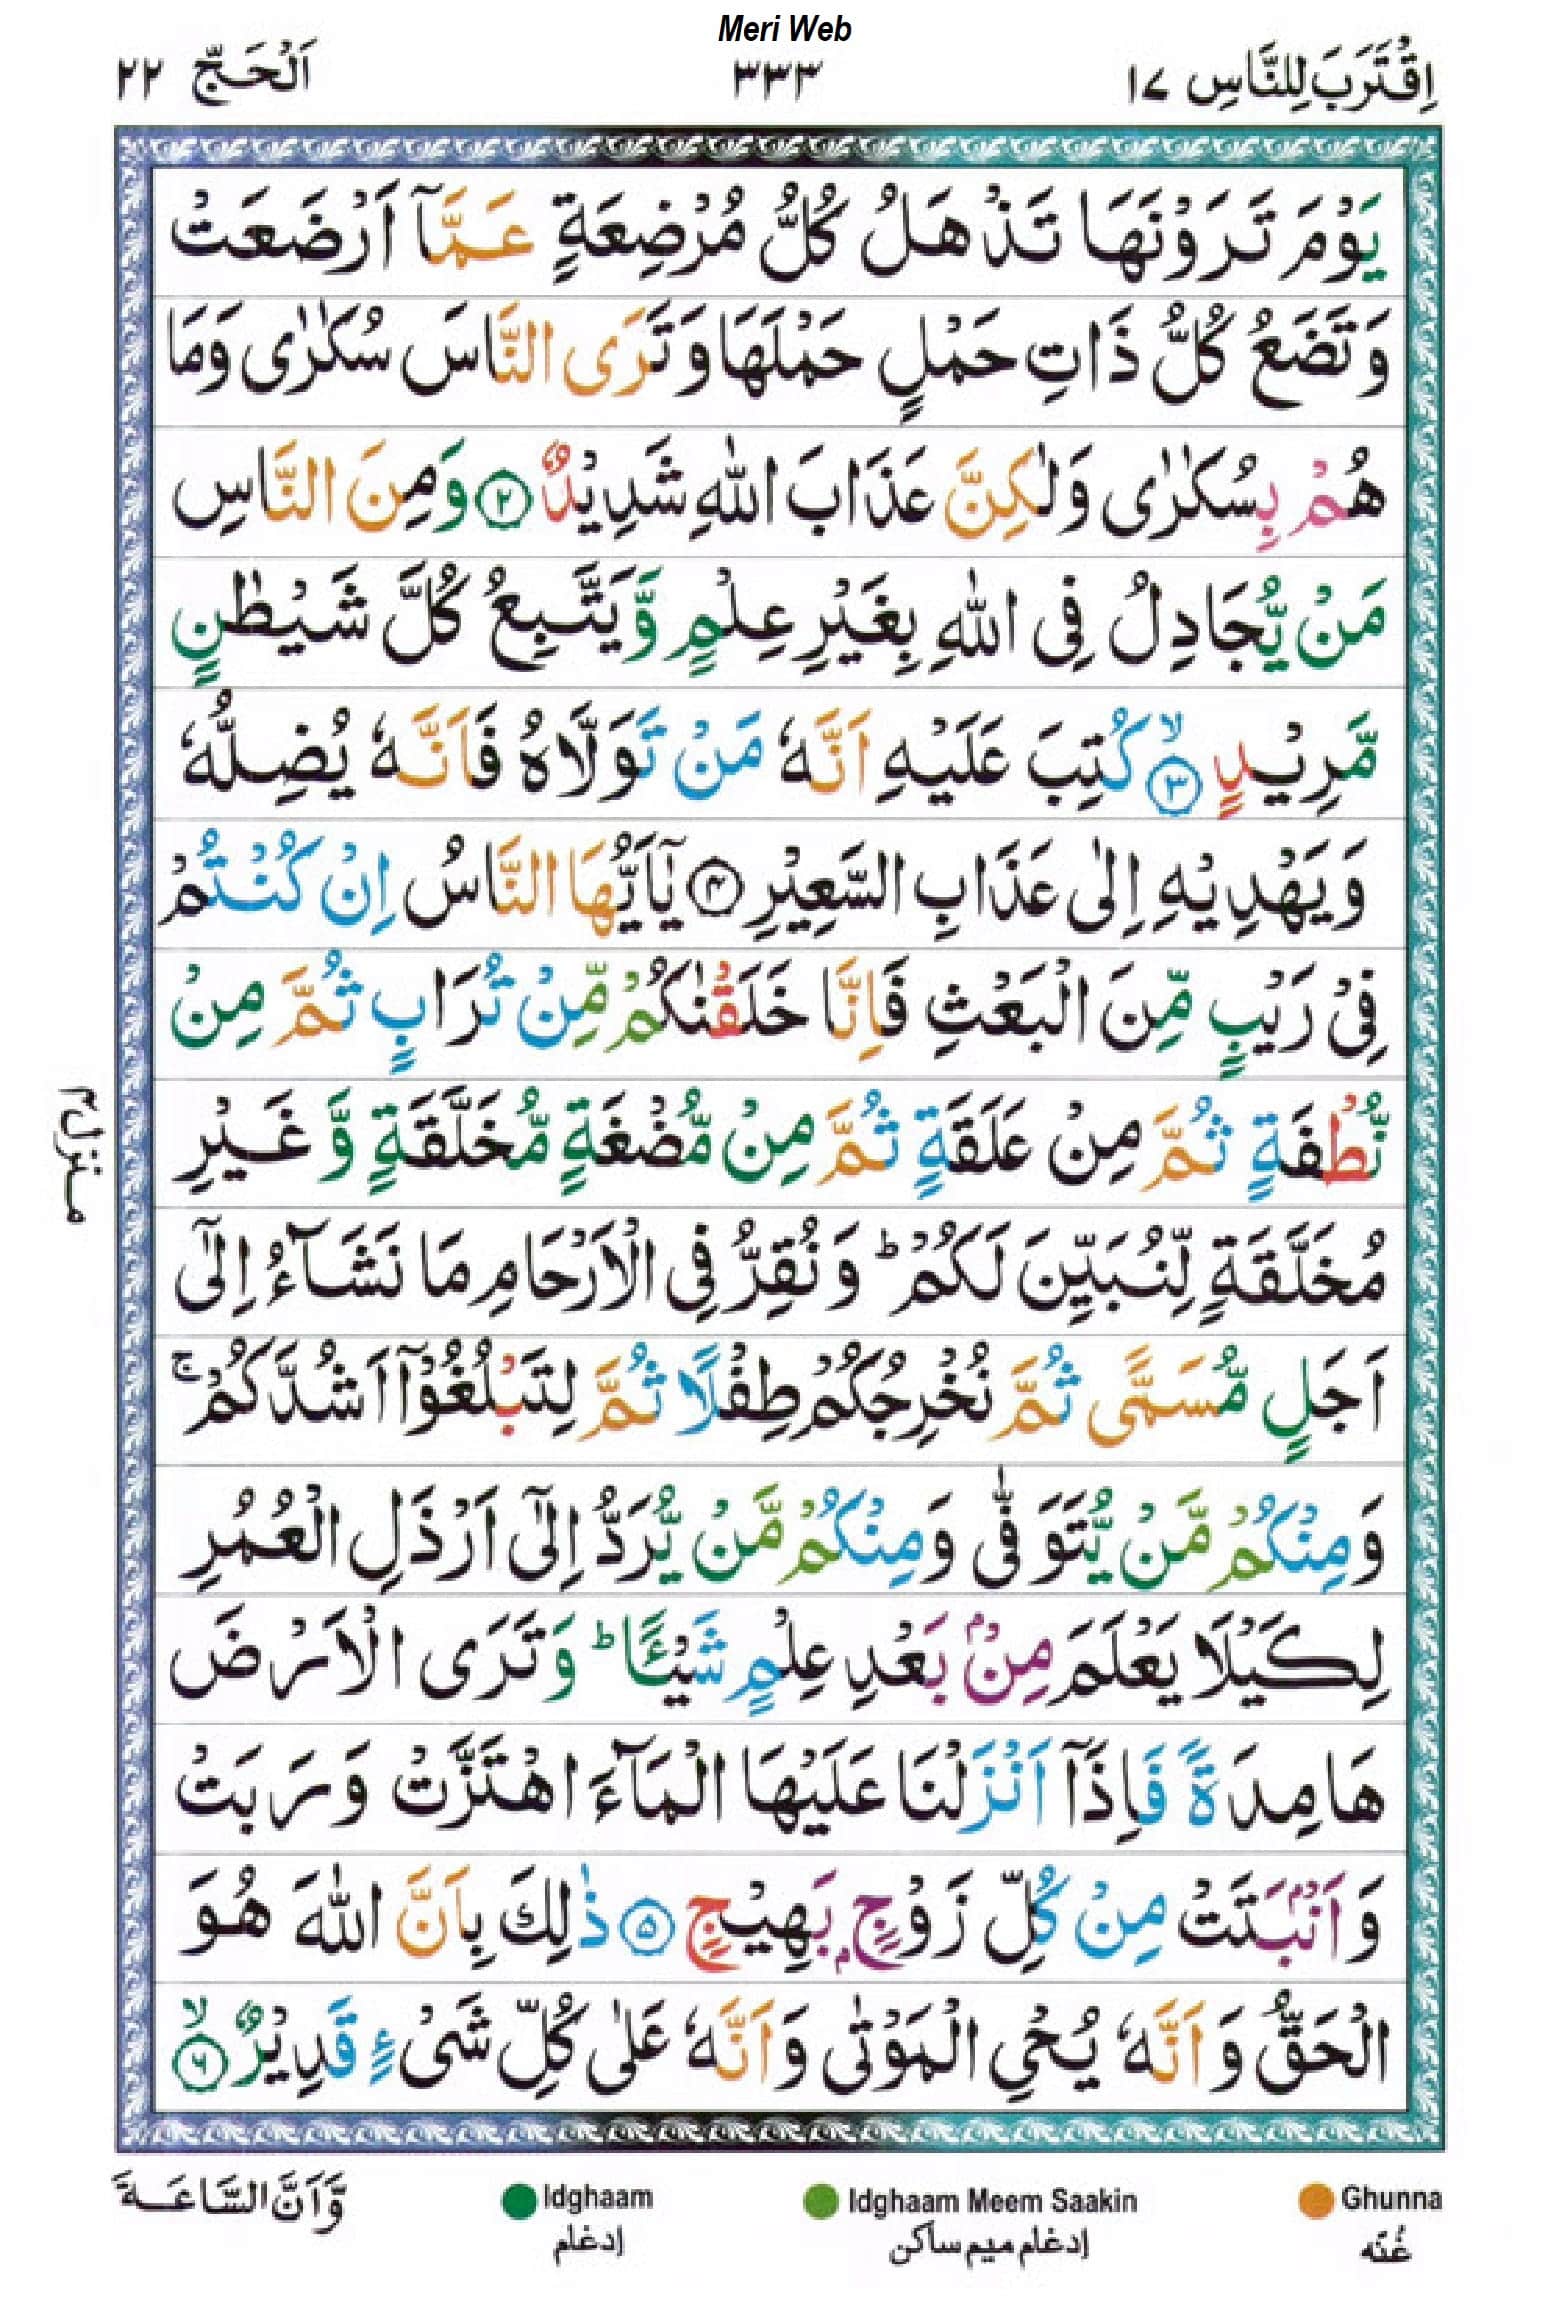 Meri Web
اِقْتَرَبَ لِلنَّاسِ ١٧ ٣٣٣ اَلْحَـجّ ٢٢
يَوْمَ تَرَوْنَهَا تَذْهَلُ كُلُّ مُرْضِعَةٍ عَمَّاۤ اَرْضَعَتْ
وَتَضَعُ كُلُّ ذَاتِ حَمْلٍ حَمْلَهَا وَتَرَى النَّاسَ سُكٰرٰى وَمَا
هُمْ بِسُكٰرٰى وَلٰكِنَّ عَذَابَ اللّٰهِ شَدِيْدٌ ﴿٢﴾ وَمِنَ النَّاسِ
مَنْ يُّجَادِلُ فِى اللّٰهِ بِغَيْرِ عِلْمٍ وَّيَتَّبِعُ كُلَّ شَيْطٰنٍ
مَّرِيْدٍ ۙ﴿٣﴾ كُتِبَ عَلَيْهِ اَنَّهٗ مَنْ تَوَلَّاهُ فَاَنَّهٗ يُضِلُّهٗ
وَيَهْدِيْهِ اِلٰى عَذَابِ السَّعِيْرِ ﴿٤﴾ يٰۤاَيُّهَا النَّاسُ اِنْ كُنْتُمْ
فِىْ رَيْبٍ مِّنَ الْبَعْثِ فَاِنَّا خَلَقْنٰكُمْ مِّنْ تُرَابٍ ثُمَّ مِنْ
نُّطْفَةٍ ثُمَّ مِنْ عَلَقَةٍ ثُمَّ مِنْ مُّضْغَةٍ مُّخَلَّقَةٍ وَّغَيْرِ
مُخَلَّقَةٍ لِّنُبَيِّنَ لَكُمْ ؕ وَنُقِرُّ فِى الْاَرْحَامِ مَا نَشَآءُ اِلٰٓى
اَجَلٍ مُّسَمًّى ثُمَّ نُخْرِجُكُمْ طِفْلًا ثُمَّ لِتَبْلُغُوْۤا اَشُدَّكُمْ ۚ
وَمِنْكُمْ مَّنْ يُّتَوَفّٰى وَمِنْكُمْ مَّنْ يُّرَدُّ اِلٰٓى اَرْذَلِ الْعُمُرِ
لِكَيْلَا يَعْلَمَ مِنْۢ بَعْدِ عِلْمٍ شَيْـًٔا ؕ وَتَرَى الْاَرْضَ
هَامِدَةً فَاِذَاۤ اَنْزَلْنَا عَلَيْهَا الْمَآءَ اهْتَزَّتْ وَرَبَتْ
وَاَنْۢبَتَتْ مِنْ كُلِّ زَوْجٍۭ بَهِيْجٍ ﴿٥﴾ ذٰلِكَ بِاَنَّ اللّٰهَ هُوَ
الْحَقُّ وَاَنَّهٗ يُحْىِ الْمَوْتٰى وَاَنَّهٗ عَلٰى كُلِّ شَىْءٍ قَدِيْرٌ ۙ﴿٦﴾
منزل٤
وَّاَنَّ السَّاعَةَ
Idghaam
إدغام
Idghaam Meem Saakin
إدغام ميم ساكن
Ghunna
غُنّه